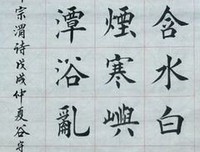 含水白
煙寒嶼
潭浴亂
宗渭诗戊戌仲夏谷